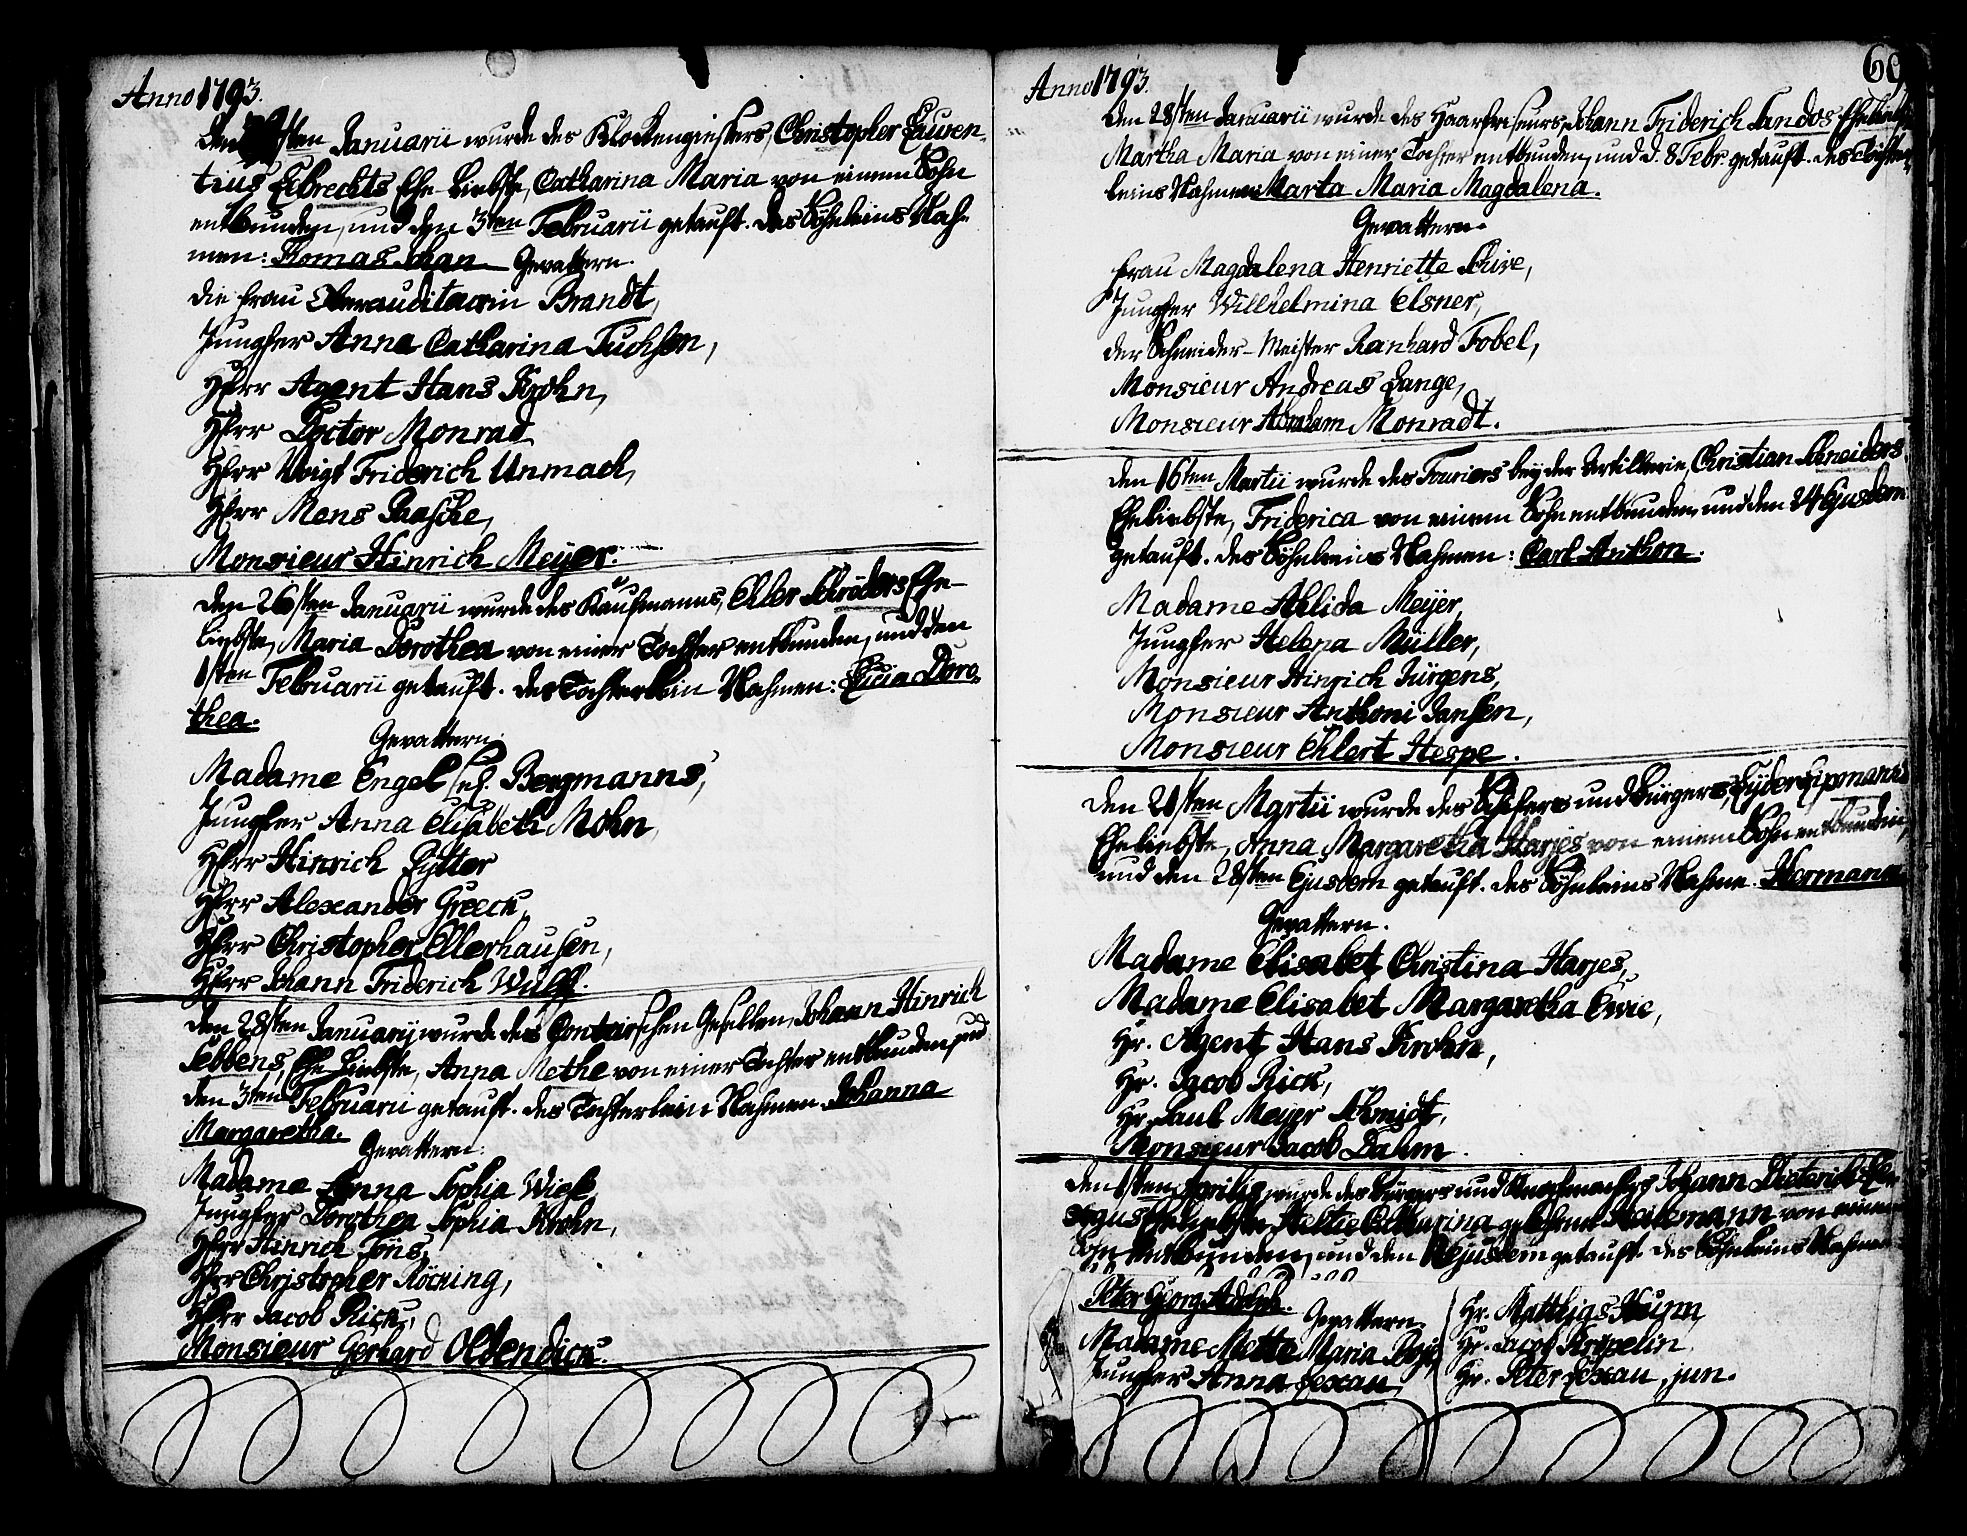 Anno 1793.
Januarii wurde des Klockengiessers, Christopher Lauren-
tius Albrechts Ehe Liebste, Catharina Maria von einem Sohn
entbunden, und den 3ten Februarii getauft. des Söhnleins Nah-
men: Thomas Johan Gevattern.
die Frau Oberauditeurin Brandt,
Jungfer Anna Catharina Tuchsen,
Herr Agent Hans Krohn,
Herr Doctor Monrad
Herr Voigt Friderich Unmach,
Herr Mens Paasche,
Monsieur Hinrich Meyer.
den 26sten Januarii wurde des Kaufmanns, Ehler Schröders Ehe-
liebste, Maria Dorothea von einer Tochter entbunden, und den
1sten Februarii getauft. des Töchterlein Nahmen: Lucia Doro-
thea.
Gevattern.
Madame Engel sel. Bergmanns,
Jungfer Anna Elisabeth Mohn,
Herr Hinrich Lütter
Herr Alexander Greeck,
Herr Christopher Ellerhausen,
Herr Johann Friderich Wulff.
den 28sten Januarij wurde des Contoirschen Gesellen, Johann Hinrich
Tebbens, Ehe Liebste, Anna Methe von einer Tochter entbunden, und
den 3ten Februarii getauft. des Töchterlein Nahmen Johanna
Margaretha.
Gevattern:
Madame Anna Sophia Wiese,
Jungfer Dorothea Sophia Krohn,
Herr Hinrich Jöns,
Herr Christopher Röcning,
Herr Jacob Rick,
Monsieur Gerhard Oldendick.
60
Anno 1793.
den 28sten Januarii wurde des Haarfriseurs, Johann Friderich Sandos Eheliebste
Martha Maria von einer Tochter entbunden, und d. 8 Febr. getauft. des Töchter-
leins Nahmen Marta Maria Magdalena.
Gevattern.
Frau Magdalena Henriette Schive,
Jungfer Willhelmina Elsner,
der Schneider-Meister Ranhard Tobel,
Monsieur Andreas Lange,
Monsieur Abraham Monradt.
den 16ten Martii wurde des Fouriers bey der Artillerie, Christian Schneiders
Eheliebste, Friderica von einem Sohn entbunden, und den 24 Ejusdem
getauft. des Söhnleins Nahmen: Carl Anthon.
Madame Ahlida Meyer,
Jungfer Helena Müller,
Monsieur Hinrich Jürgens,
Monsieur Anthoni Jansen,
Monsieur Ehlert Hespe.
den 21sten Martii wurde des Schifers und Bürgers, Lyder Lipmanns
Eheliebste, Anna Margaretha Harjes von einem Sohn entbunden,
und den 28sten Ejusdem getauft. des Söhnleins Nahme. Hermann
Gevattern.
Madame Elisabet Christina Harjes,
Madame Elisabet Margaretha Evie,
Hr. Agent Hans Krohn,
Hr. Jacob Rick,
Hr. Paul Meyer Schmidt,
Monsieur Jacob Dahm.
den 1sten Aprilis wurde des Bürgers und Johann Dieterich
Eheliebste, Catharina gebohrne von einem
Sohn entbunden, und den Ejusdem getauft. des Söhnleins Nahmen
Peter Georg Adolph.
Gevattern.
Madame Mette Maria Boje,
Jungfer Anna Lexau,
Hr. Matthias Huun,
Hr. Jacob Köppelin,
Hr. Peter Lexau, jun.